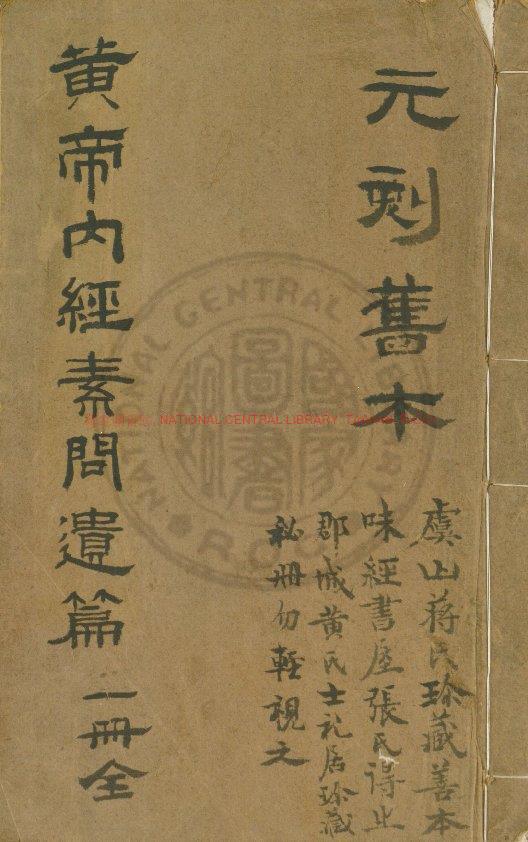 元刻舊本
虞山蔣氏珍藏善本
味經書屋張氏得止
郡城黄氏士礼居珍藏
秘冊勿輕視之
黄帝内經素問遺篇一冊全
NATIONAL CENTRAL LIBRARY